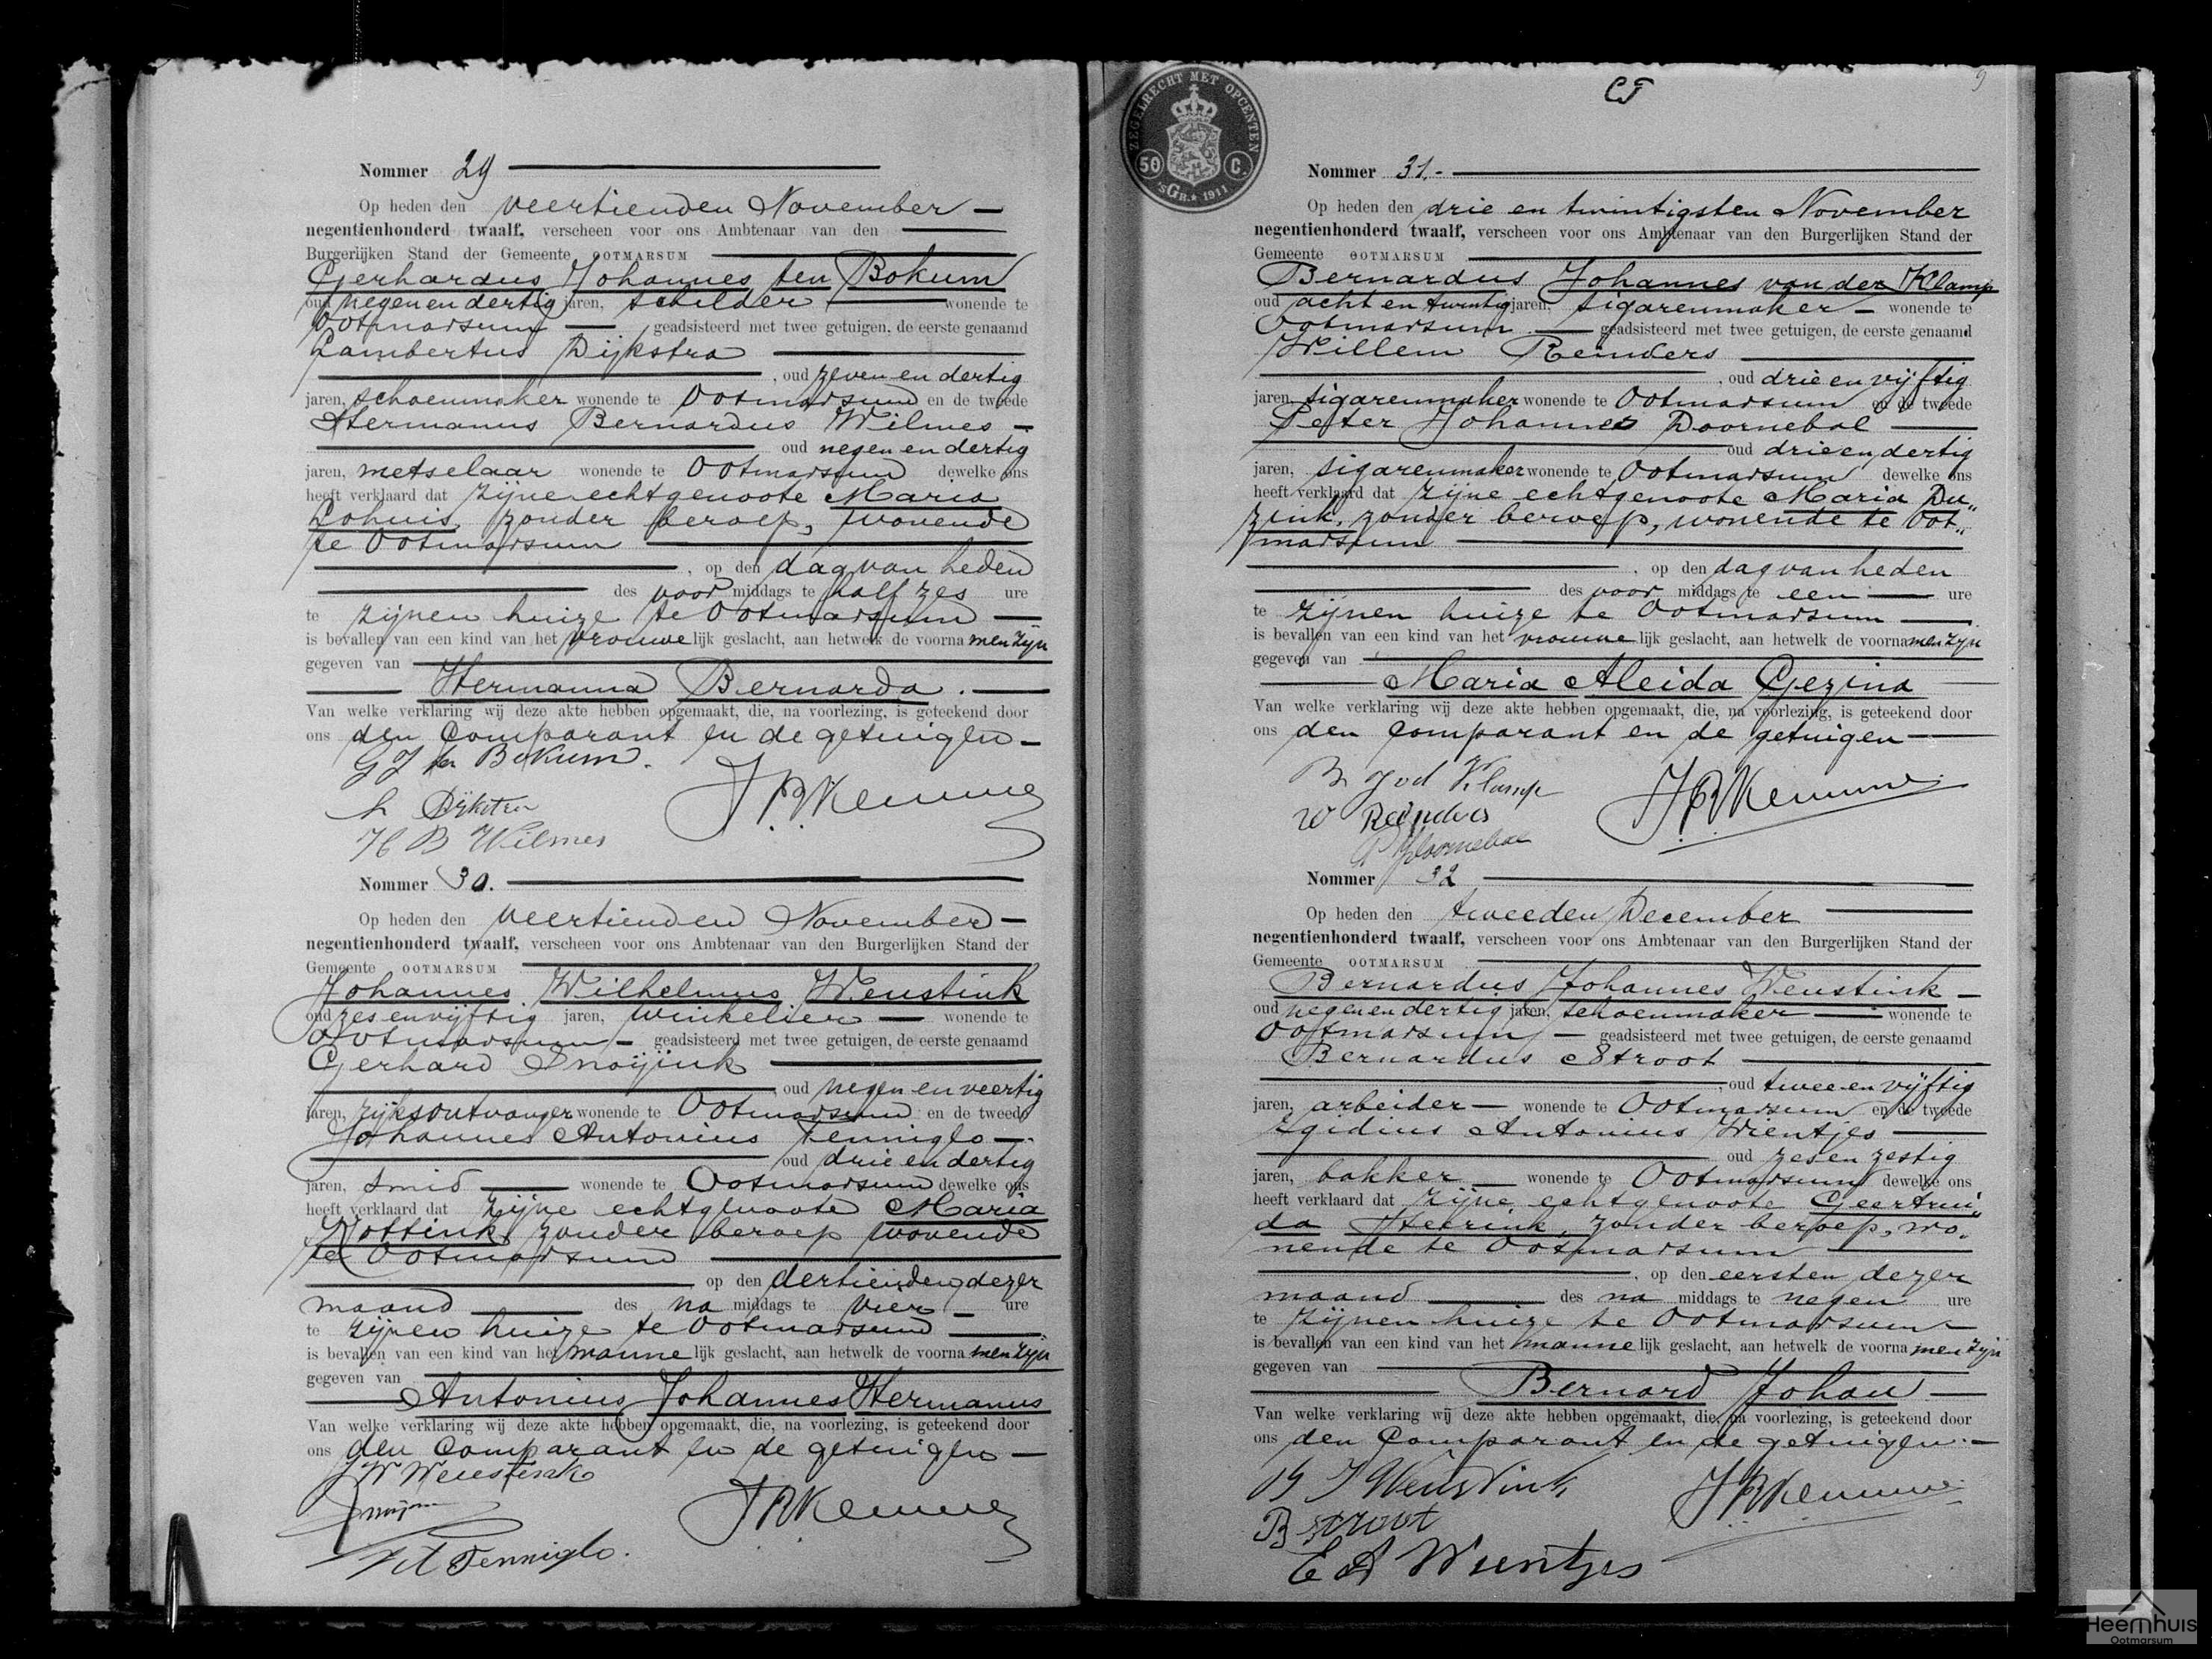 Nommer 29
Op heden den veertienden November
negentienhonderd twaalf, verscheen voor ons Ambtenaar van den
Burgerlijken Stand der Gemeente OOTMARSUM
Gerhardus Johannes ten Bokum
oud negen en dertig jaren, schilder wonende te
Ootmarsum geadsisteerd met twee getuigen, de eerste genaamd
Lambertus Dijkstra
, oud zeven en dertig
jaren, schoenmaker wonende te Ootmarsum en de tweede
Hermanus Bernardus Wilmes
oud negen en dertig
jaren, metselaar wonende te Ootmarsum dewelke ons
heeft verklaard dat zijne echtgenoote Maria
Lohuis, zonder beroep, wonende
te Ootmarsum
, op den dag van heden
des voor middags te half zes ure
te zijnen huize te Ootmarsum
is bevallen van een kind van het vrouwe lijk geslacht, aan hetwelk de voorna men zijn
gegeven van
Hermanna Bernarda.
Van welke verklaring wij deze akte hebben opgemaakt, die, na voorlezing, is geteekend door
ons den Comparant en de getuigen
G J ten Bokum.
L Dijkstra
H B Wilmes
Nommer 30.
Op heden den veertienden November
negentienhonderd twaalf, verscheen voor ons Ambtenaar van den Burgerlijken Stand der
Gemeente OOTMARSUM
Johannes Wilhelmus Weustink
oud zes en vijftig jaren, winkelier wonende te
Ootmarsum geadsisteerd met twee getuigen, de eerste genaamd
Gerhard Snoijink
, oud negen en veertig
jaren, rijksontvanger wonende te Ootmarsum en de tweede
Johannes Antonius Tenniglo
oud drie en dertig
jaren, smid wonende te Ootmarsum dewelke ons
heeft verklaard dat zijne echtgenoote Maria
zonder beroep wonende
te Ootmarsum
op den dertienden dezer
maand des na middags te vier ure
te zijnen huize te Ootmarsum
is bevallen van een kind van het manne lijk geslacht, aan hetwelk de voorna men zijn
gegeven van
Antonius Johannes Hermanus
Van welke verklaring wij deze akte hebben opgemaakt, die, na voorlezing, is geteekend door
ons den Comparant en de getuigen
J W Weustink
Tenniglo.
ZEGELRECHT MET OPCENTEN
50 C.
'sGR. 1911
9
Nommer 31.-
Op heden den drie en twintigsten November
negentienhonderd twaalf, verscheen voor ons Ambtenaar van den Burgerlijken Stand der
Gemeente OOTMARSUM
Bernardus Johannes van der Klamp
oud acht en twintig jaren, sigarenmaker wonende te
Ootmarsum geadsisteerd met twee getuigen, de eerste genaamd
Willem Reinders
, oud drie en vijftig
jaren, sigarenmaker wonende te Ootmarsum en de tweede
Peter Johannes Doornebal
oud drie en dertig
jaren, sigarenmaker wonende te Ootmarsum dewelke ons
heeft verklaard dat zijne echtgenoote Maria Du„
zink, zonder beroep, wonende te Oot„
marsum
, op den dag van heden
des voor middags te een ure
te zijnen huize te Ootmarsum
is bevallen van een kind van het vrouwe lijk geslacht, aan hetwelk de voorna men zijn
gegeven van
Maria Aleida Gezina
Van welke verklaring wij deze akte hebben opgemaakt, die, na voorlezing, is geteekend door
ons den Comparant en de getuigen
B J vd Klamp
W Reinders
P J Doornebal
Nommer 32
Op heden den tweeden December
negentienhonderd twaalf, verscheen voor ons Ambtenaar van den Burgerlijken Stand der
Gemeente OOTMARSUM
Bernardus Johannes Weustink
oud negen en dertig jaren, schoenmaker wonende te
Ootmarsum geadsisteerd met twee getuigen, de eerste genaamd
Bernardus Stroot
, oud twee en vijftig
jaren, arbeider wonende te Ootmarsum en de tweede
Egidius Antonius Wientjes
oud zes en zestig
jaren, bakker wonende te Ootmarsum dewelke ons
heeft verklaard dat zijne echtgenoote Geertrui„
da zonder beroep, wo„
nende te Ootmarsum
, op den eersten dezer
maand des na middags te negen ure
te zijnen huize te Ootmarsum
is bevallen van een kind van het manne lijk geslacht, aan hetwelk de voorna men zijn
gegeven van
Bernard Johan
Van welke verklaring wij deze akte hebben opgemaakt, die, na voorlezing, is geteekend door
ons den Comparant en de getuigen.
B J Weustink
B Stroot
E A Wientjes
Heemhuis
Ootmarsum